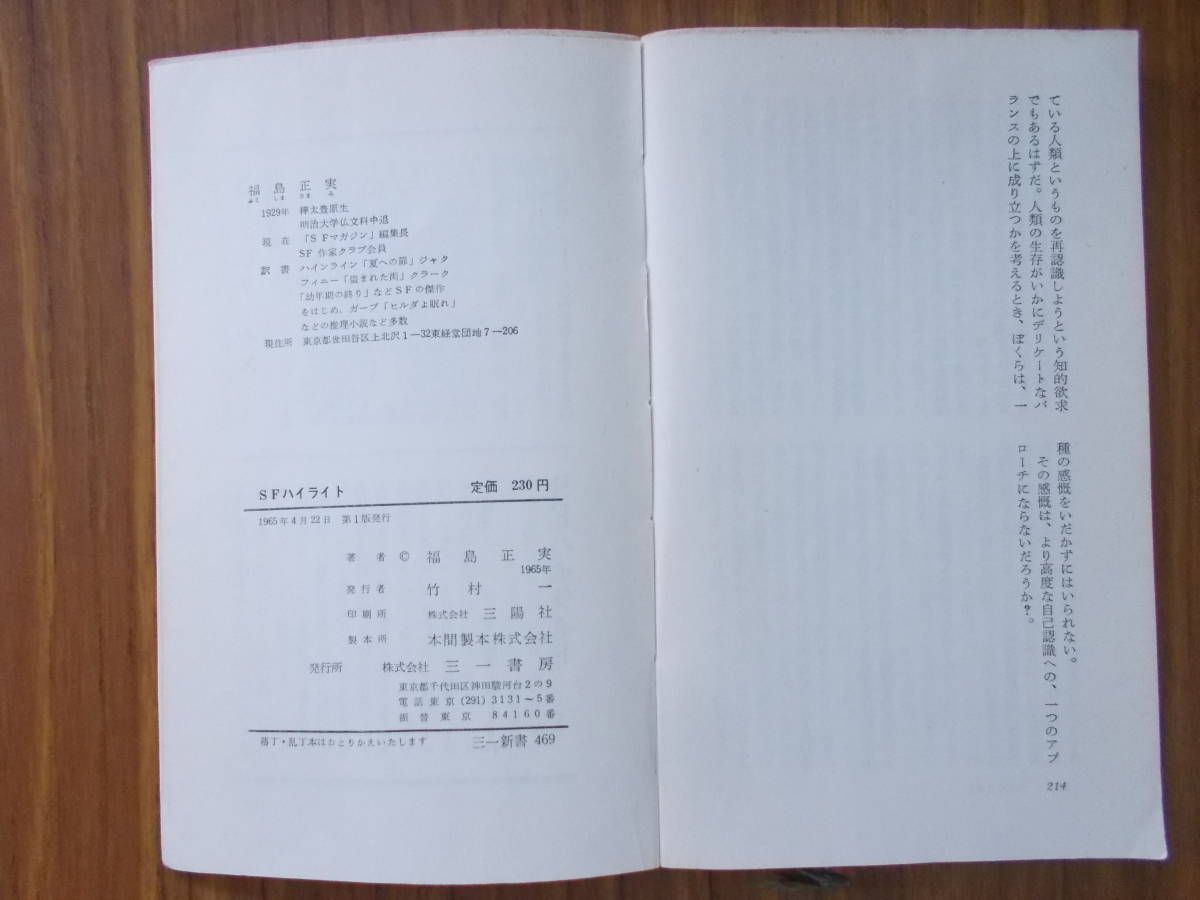 ている人類というものを再認識しようという知的欲求
でもあるはずだ。人類の生存がいかにデリケートなバ
ランスの上に成り立つかを考えるとき、ぼくらは、一
種の感慨をいだかずにはいられない。
その感慨は、より高度な自己認識への、一つのアプ
ローチにならないだろうか?。
214
福島正実
ふく しま まさ み
1929年 樺太豊原生
明治大学仏文科中退
現在 「SFマガジン」編集長
SF作家クラブ会員
訳書 ハインライン「夏への扉」ジャク
フィニー「盗まれた街」クラーク
「幼年期の終り」などSFの傑作
をはじめ、ガーブ「ヒルダよ眠れ」
などの推理小説など多数
現住所 東京都世田谷区上北沢1—32東経堂団地7—206
SFハイライト 定価 230円
1965年4月22日 第1版発行
著者 © 福島正実
1965年
発行者 竹村一
印刷所 株式会社 三陽社
製本所 本間製本株式会社
発行所 株式会社 三一書房
東京都千代田区神田駿河台2の9
電話東京(291)3131〜5番
振替東京 84160番
落丁・乱丁本はおとりかえいたします 三一新書 469